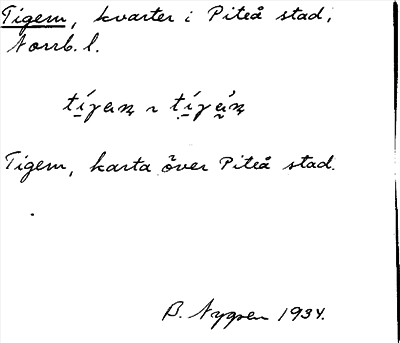 Tigern, kvarter i Piteå stad,
Norrb. l.
Tigern, karta över Piteå stad.
B. Nygren 1934.